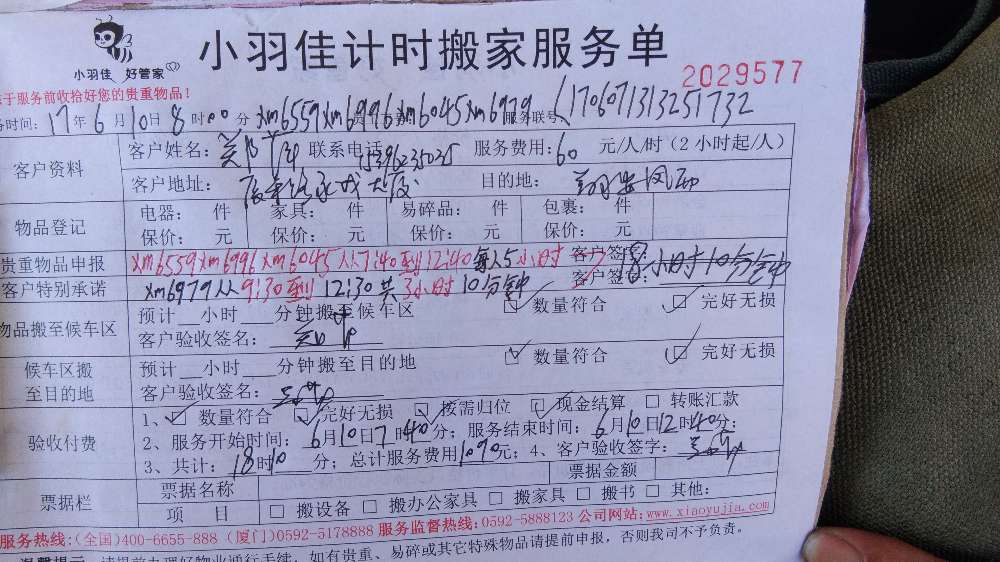 小羽佳计时搬家服务单
小羽佳 好管家
2029577
于服务前收拾好您的贵重物品!
务时间: 17年6月10日8时00分 xm6559 xm6996 xm6045 xm6979 服务联号 1706071313251732
客户资料 客户姓名: 联系电话 15396235035 服务费用: 60 元/人/时 (2小时起/人)
客户地址: 目的地: 翔安凤西
物品登记 电器: 件 家具: 件 易碎品: 件 包裹: 件
保价: 元 保价: 元 保价: 元 保价: 元
贵重物品申报 xm6559 xm6996 xm6045 从7:40到12:40每人5小时 客户签
客户特别承诺 xm6979从9:30到12:30共3小时10分钟 客户签: 小时10分钟
物品搬至候车区 预计__小时___分钟搬至候车区 ☑ 数量符合 ☑ 完好无损
客户验收签名:
候车区搬至目的地 预计__小时___分钟搬至目的地 ☑ 数量符合 ☑ 完好无损
客户验收签名:
验收付费 1、☑ 数量符合 ☑ 完好无损 ☑ 按需归位 ☑ 现金结算 □ 转账汇款
2、服务开始时间: 6月10日7时40分; 服务结束时间: 6月10日12时40分;
3、共计: 18时10分; 总计服务费用1090元; 4、客户验收签字:
票据栏 票据名称 票据金额
项 目 □ 搬设备 □ 搬办公家具 □ 搬家具 □ 搬书 □ 其他:
服务热线:(全国)400-6655-888 (厦门)0592-5178888 服务监督热线:0592-5888123 公司网站:www.xiaoyujia.com
温馨提示: 请提前办理好物业通行手续, 如有贵重、易碎或其它特殊物品请提前申报, 否则我司不予负责。